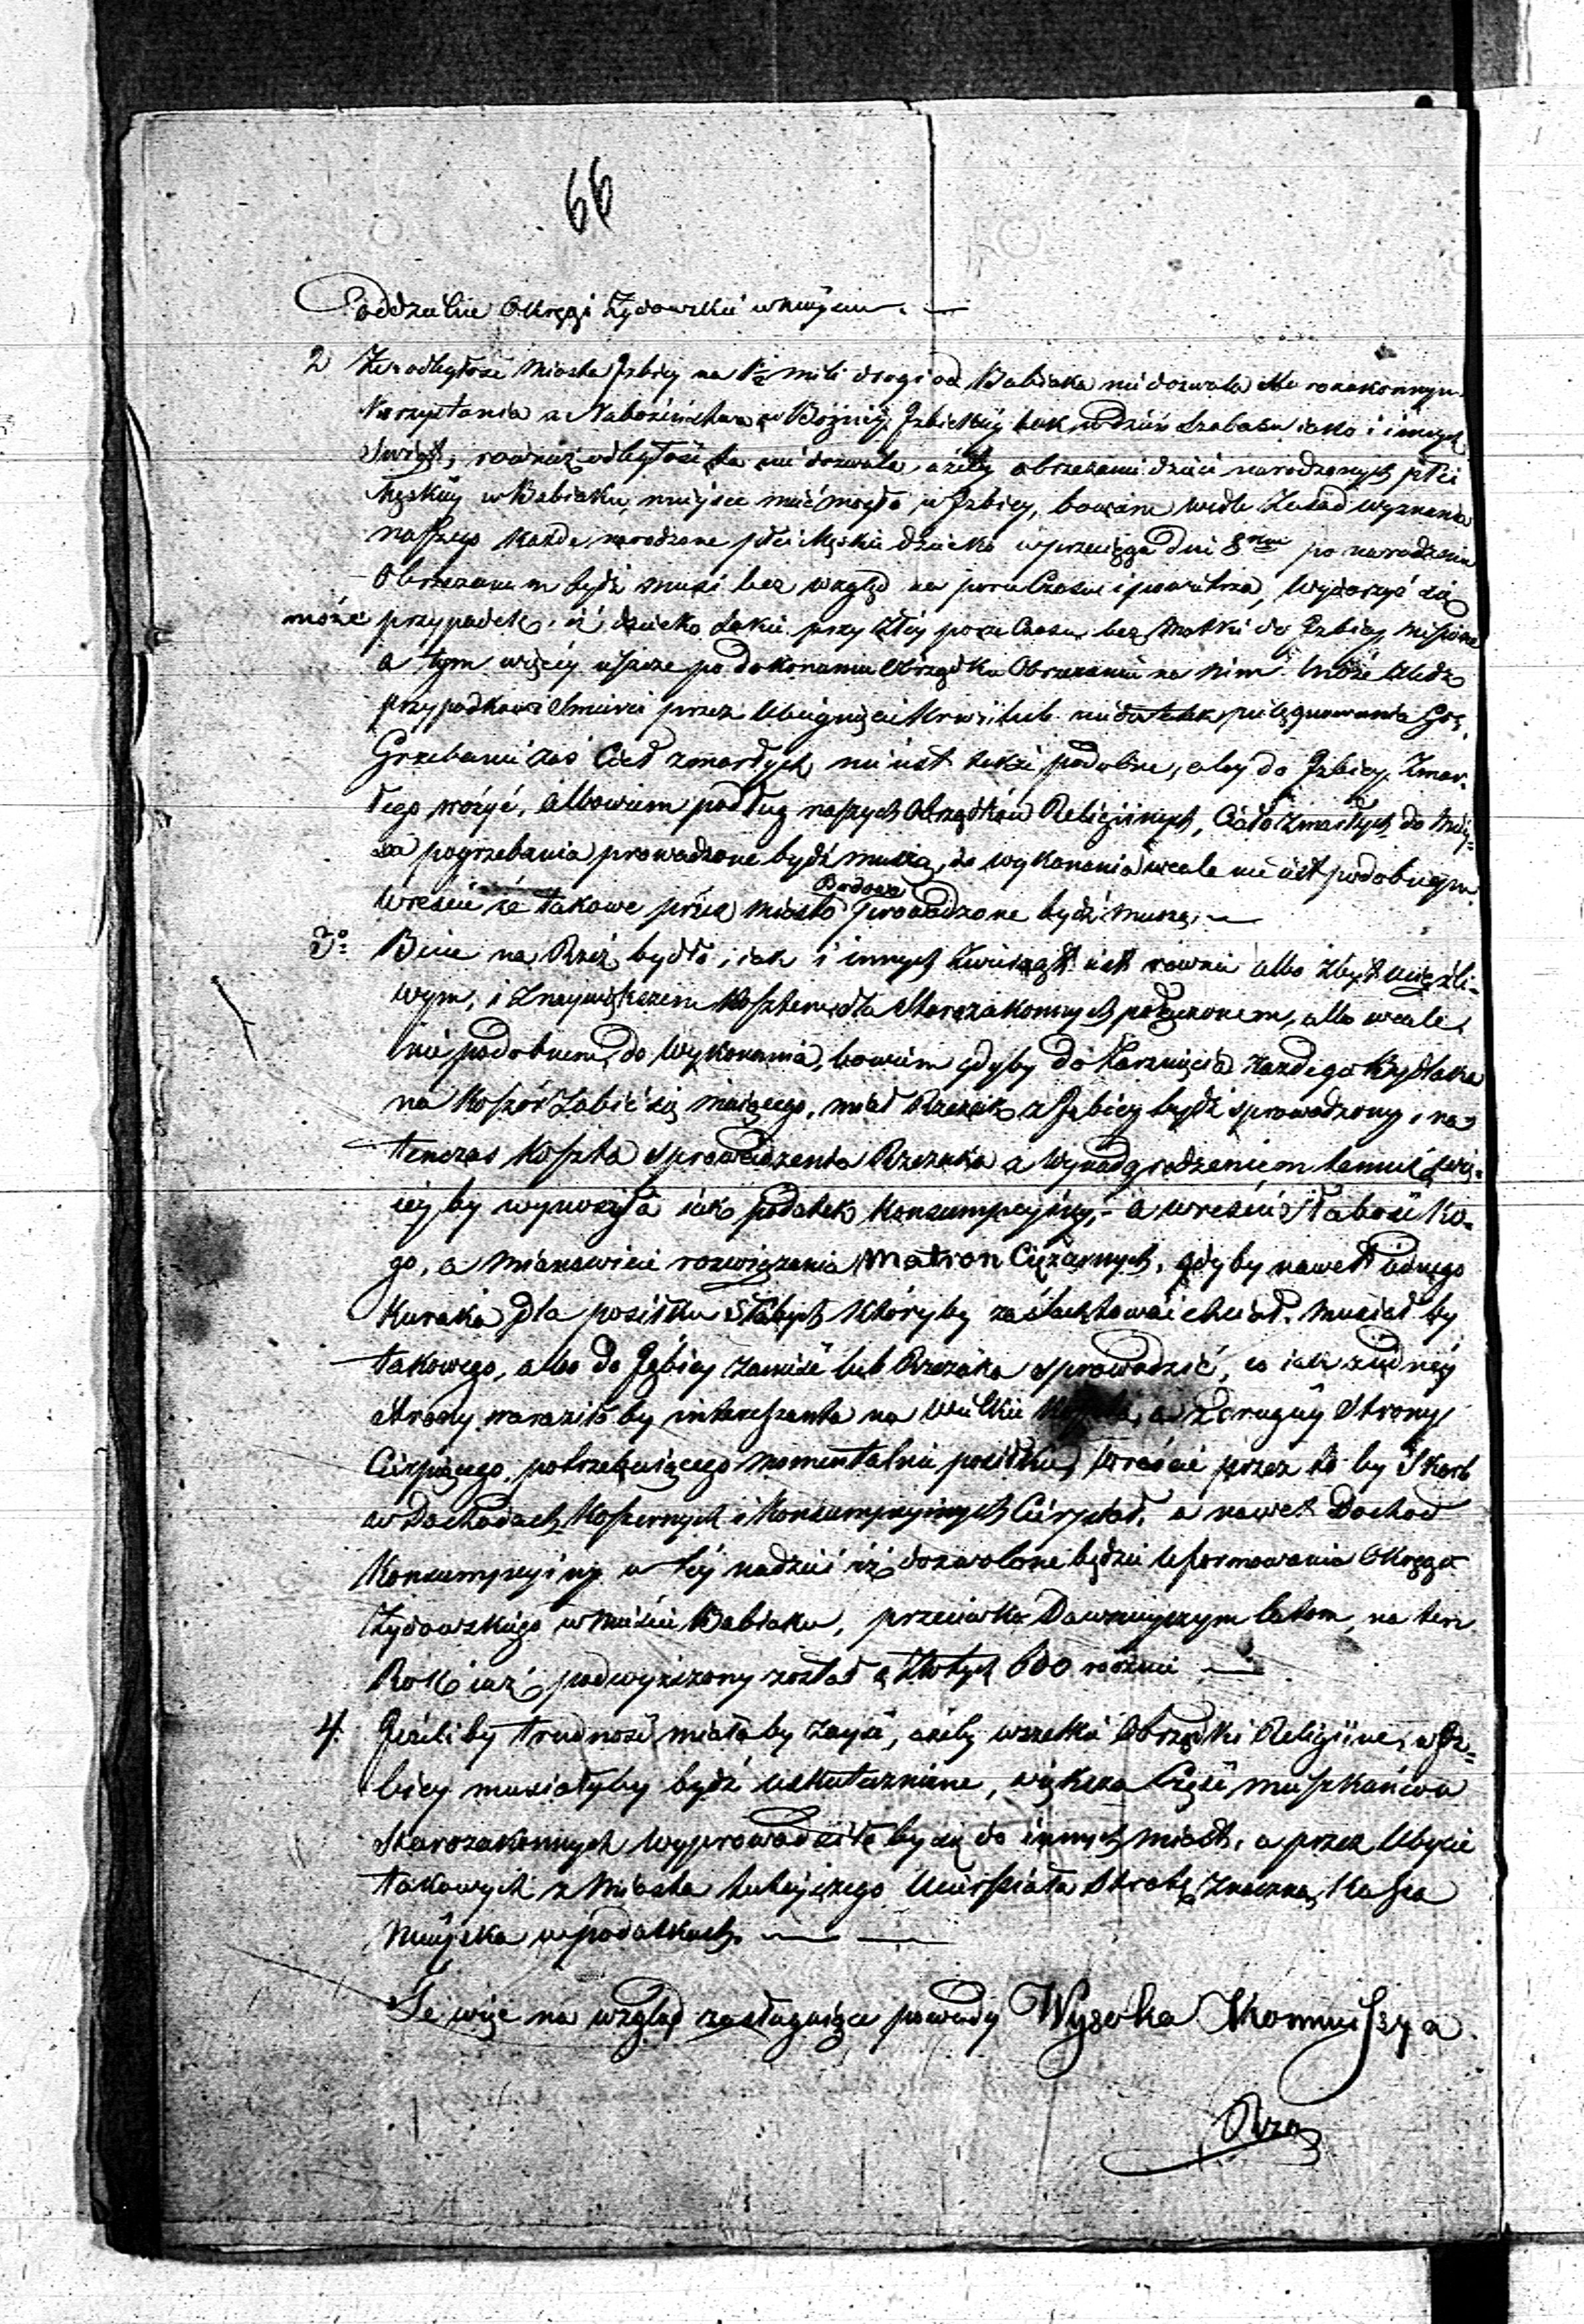 66
oddzielne Okręgi Żydowskie w kraju. —
2 Że odległość Miasta Izbicy na 1½ mili drogi od Babiaka nie dozwala Starozakonnym
Korzystania z Nabożeństwa w Bożnicy Izbickiey tak w dzień Szabasu iako i innych
Świąt, również odległość ta nie dozwala, ażeby obrzezanie dzieci narodzonych płci
Męskiey w Babiaku, mieysce mieć mogło w Izbicy, bowiem wedle Zasad wyznania
naszego każde narodzone płci Męskiey dziecko w przeciągu dni 8miu po narodzeniu
Obrzezanem bydź musi bez względ na porę Czasu i powietrza, Wydarzyć się
może przypadek, iż dziecko takie przy złéy porze Czasu bez Matki do Izbicy niesione
a tym więcéy ieszcze po dokonaniu Obrządku Obrzezania na nim może uledz
przypadkowi Śmierci przez Ubiegnięcie Krwi lub niedostatek pielęgnowania Go,
Grzebanie zaś Ciał zmarłych, nie iest także podobne, aby do Izbicy Zmar-
łego wozyć, albowiem podług naszych Obrządków Religiinych, Ciała zmarłych do Miey-
sca pogrzebania prowadzone bydź muszą, do wykonania wcale nie iest podobnym
Wreście że takowe przez Miasto Brdowo prowadzone bydź muszą. —
3o Bicie na Rzeź bydła, iak i innych Zwierząt iest równie albo zbyt uciążli-
wym, i z naywiększem Kosztem dla Starozakonnych połączonem, albo wcale
niepodobnem do Wykonania, bowiem gdyby do Zarznięcia każdego bydlaka
na Koszer Zabić się maiącego, miał Rzezak z Izbicy bydź sprowadzony, na-
tenczas Koszta sprowadzenia Rzezaka z wynadgrodzeniem temuż wię-
céy by wynosiła iak podatek Konsumpcyiny, - a wreście Słabość ko-
go, a mianowicie rozwiązania Matron Ciężarnych, gdyby nawet iednego
Kuraka dla posiłku Słabych któryby zaślachtować chciał. musiał by
takowego, albo do Izbicy zanieść lub Rzezaka sprowadzić, co iak z iednéy
strony naraziło by interessanta na wielkie Koszta, a z drugiéy Strony
Cierpiącego potrzebuiącego momentalnie posiłku, Wreście przez to by Skarb
w Dochodach Koszernych i Konsumpcyinych Cierpiał, a nawet Dochod
Konsumpcyiny w téy nadziei iż dozwolone będzie uformowanie Okręgu
Żydowskiego w Mieście Babiaku, przeciwko Dawnieyszym latom, na ten
Rok iuż podwyższony został o Złotych 600 rocznie —
4. Jeżeli by trudność miała by zayść, ażeby wszelkie Obrządki Religiine, w Iz-
bicy musiałyby bydź uskutecznione, większa Część mieszkańców
Starozakonnych wyprowadziła by się do innych miast, a przez Ubycie
takowych z Miasta tuteyszego Ucierpiała Stratę znaczną Kassa
Mieyska w podatkach. —
Te więc na wzgląd zasługuiące powody Wysoka Kommissya
Rzą